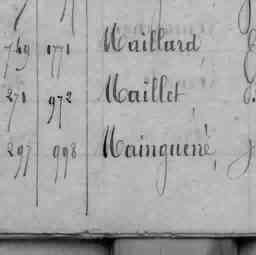 749 1771 Maillard,
271 972 Maillet,
297 998 Mainguené,